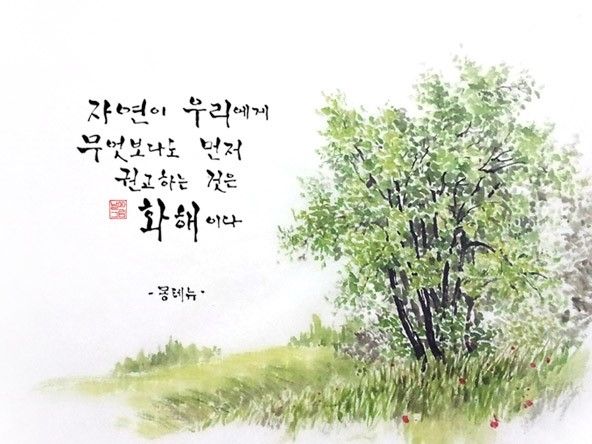 자연이 우리에게
무엇보다도 먼저
권고하는 것은
화해이다
-몽테뉴-